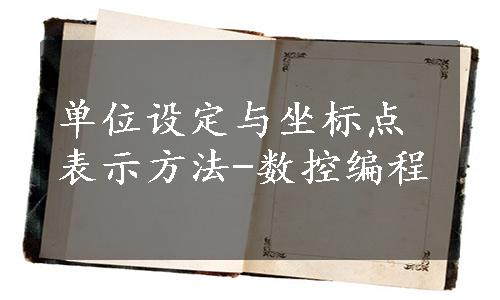 单位设定与坐标点
表示方法-数控编程